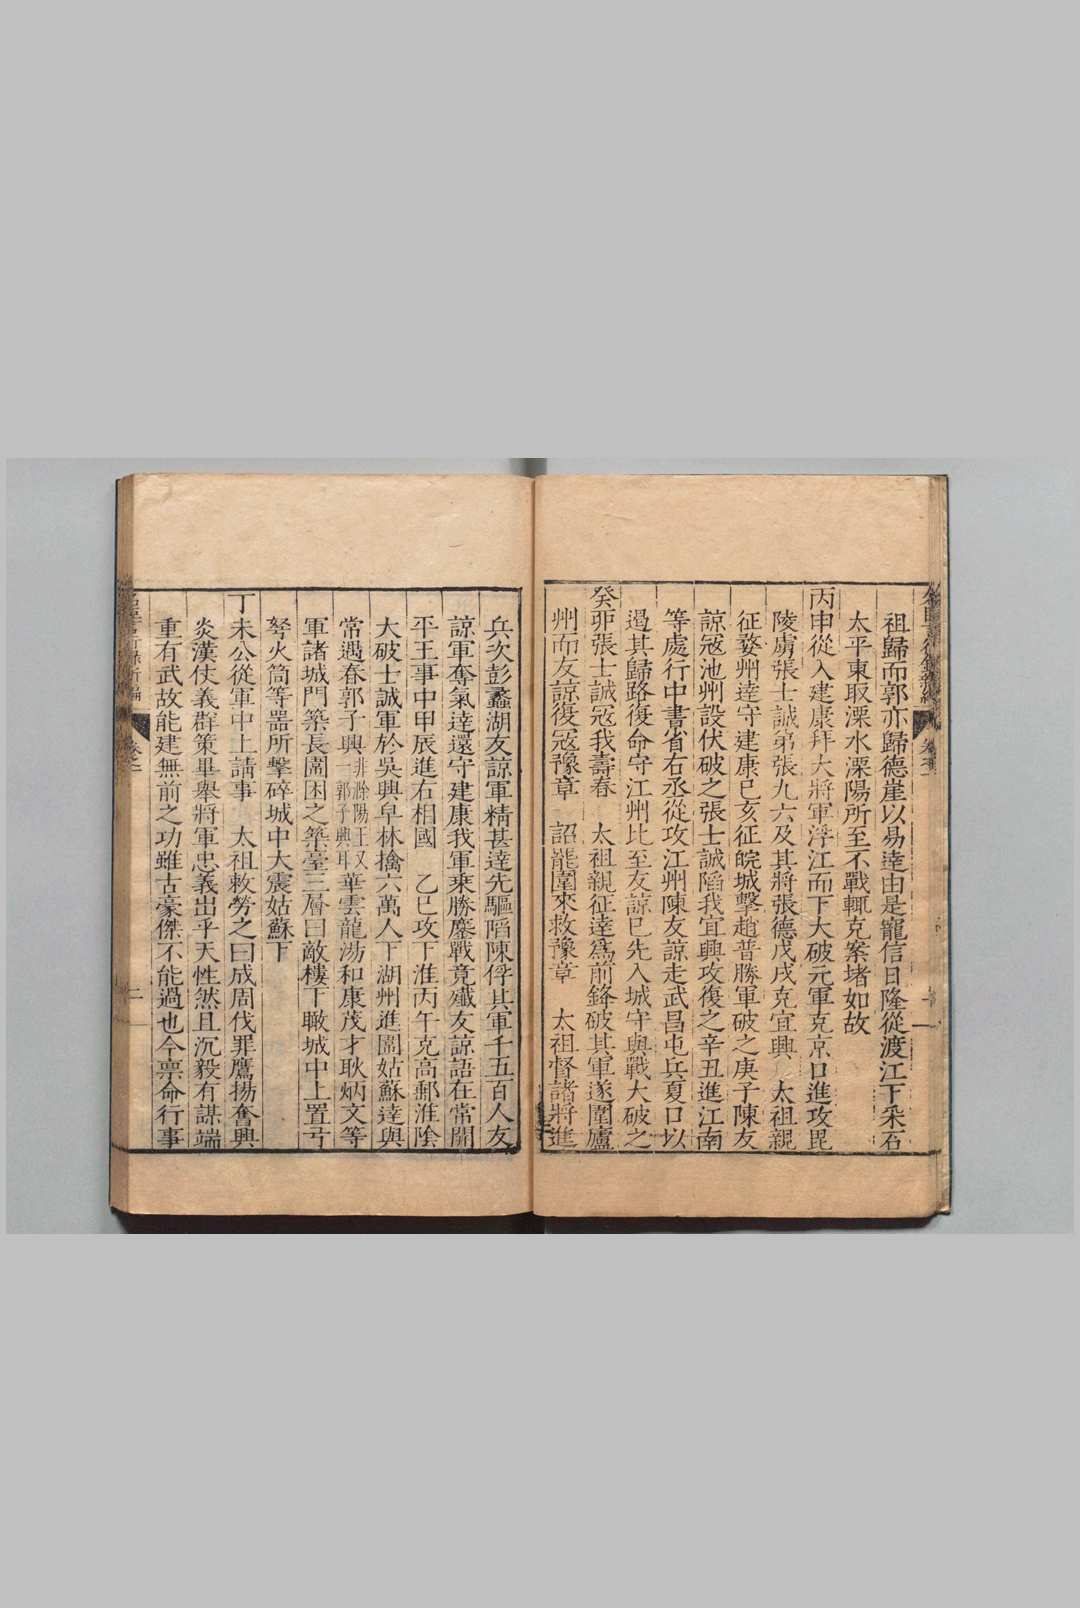 祖歸而郭亦歸德崖以易逹由是寵信日隆從渡江下采石
太平東取溧水溧陽所至不戰輒克案堵如故
丙申從入建康拜大將軍浮江而下大破元軍克京口進攻毘
陵虜張士誠第張九六及其將張德戊戌克宜興 太祖親
征婺州逹守建康己亥征皖城擊趙普勝軍破之庚子陳友
諒寇池州設伏破之張士誠䧟我宜興攻復之辛丑進江南
等處行中書省右丞從攻江州陳友諒走武昌屯兵夏口以
遏其歸路復命守江州比至友諒已先入城守與戰大破之
癸卯張士誠寇我壽春 太祖親征逹為前鋒破其軍遂圍廬
州而友諒復寇豫章 詔罷圍來救豫章 太祖督諸將進
兵次彭蠡湖友諒軍精甚逹先驅䧟陳俘其軍千五百人友
諒軍奪氣逹還守建康我軍乘勝鏖戰竟殲友諒語在常開
平王事中甲辰進右相國 乙巳攻下淮丙午克高郵淮陰
大破士誠軍於吳興皁林擒六萬人下湖州進圖姑蘇逹與
常遇春郭子興非滁陽王又一郭子興耳華雲龍湯和康茂才耿炳文等
軍諸城門築長圍困之築臺三層曰敵樓下瞰城中上置弓
弩火筒等器所擊碎城中大震姑蘇下
丁未公從軍中上請事 太祖敕勞之曰成周伐罪鷹揚奮興
炎漢仗義群策畢舉將軍忠義出乎天性然且沉毅有謀端
重有武故能建無前之功雖古豪傑不能過也今禀命行事
卷之二
二